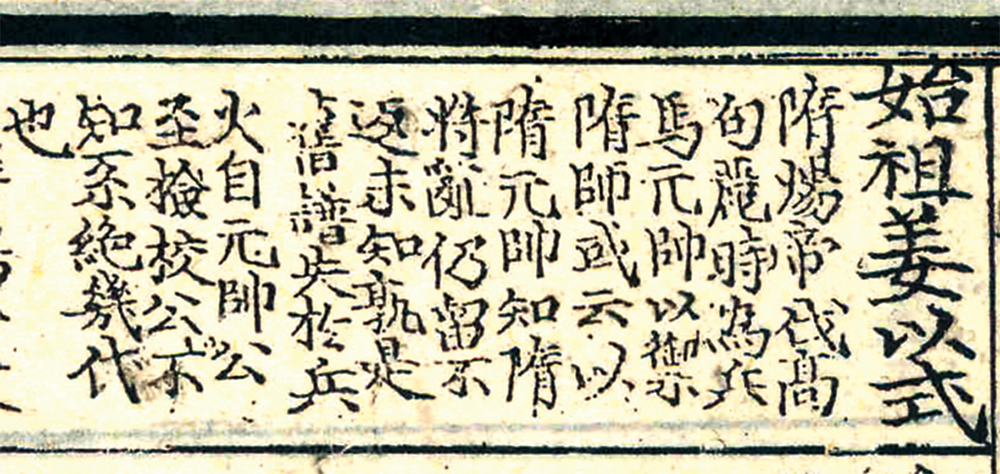 始祖姜以式
隋煬帝伐高
句麗時為兵
馬元帥以禦
隋師或云以
隋元帥知隋
將亂仍留不
返未知孰是
舊譜失於兵
火自元帥公
至檢校公不
知系絶幾代
也